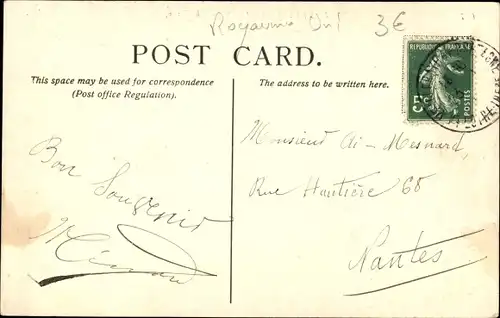 Royaume Uni 3€
POST CARD.
This space may be used for correspondence
(Post office Regulation).
The address to be written here.
REPUBLIQUE FRANÇAISE
5c
POSTES
Bon Souvenir
Monsieur
Rue Hautière 68
Nantes